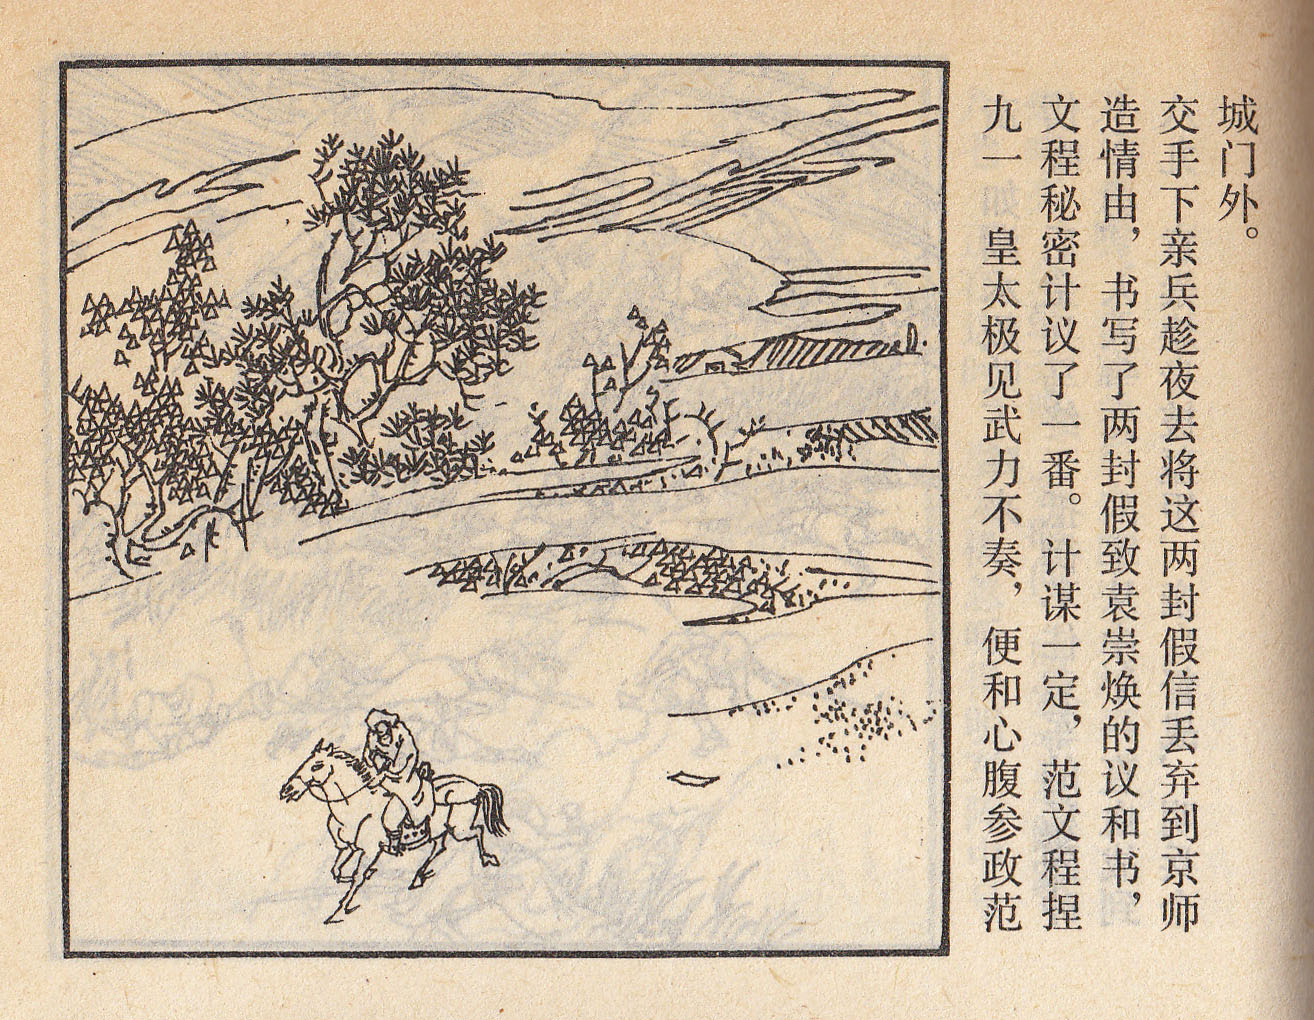 九一 皇太极见武力不奏，便和心腹参政范
文程秘密计议了一番。计谋一定，范文程捏
造情由，书写了两封假致袁崇焕的议和书，
交手下亲兵趁夜去将这两封假信丢弃到京师
城门外。